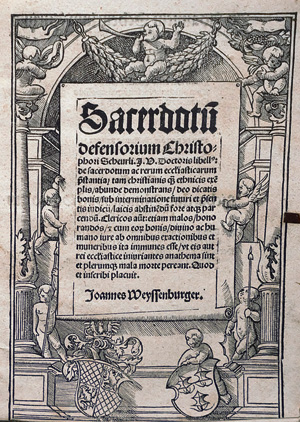 Sacerdotū
defensorium Christo-
phori Scheurli. J. U. Doctoris libellꝰ:
de sacerdotum ac rerum ecclesiasticarum
p̄stantia/ tam christianis q̄ ethnicis exē
plis/abunde demonstrans/ deo dicatis
bonis/sub interminatione futuri et p̄sen
tis iudicii/laicis abstinēdū fore atq; par
cendū. Clericos aūt: etiam malos/hono
randos/ et cum eorū bonis/divino ac hu
mano iure ab omnibus exactionibus et
muneribus ita immunes esse/ut eis aut
rei ecclesiastice iniuriantes anathema sint
et plerumq; mala morte pereant. Quod
et inscribi placuit.
Joannes Weyssenburger.